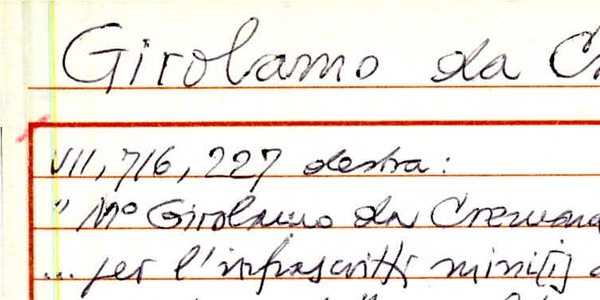 Girolamo da Cr
VII, 716, 227 destra:
" Mº Girolamo da Cremona
... per l'infrascritti mini[i]